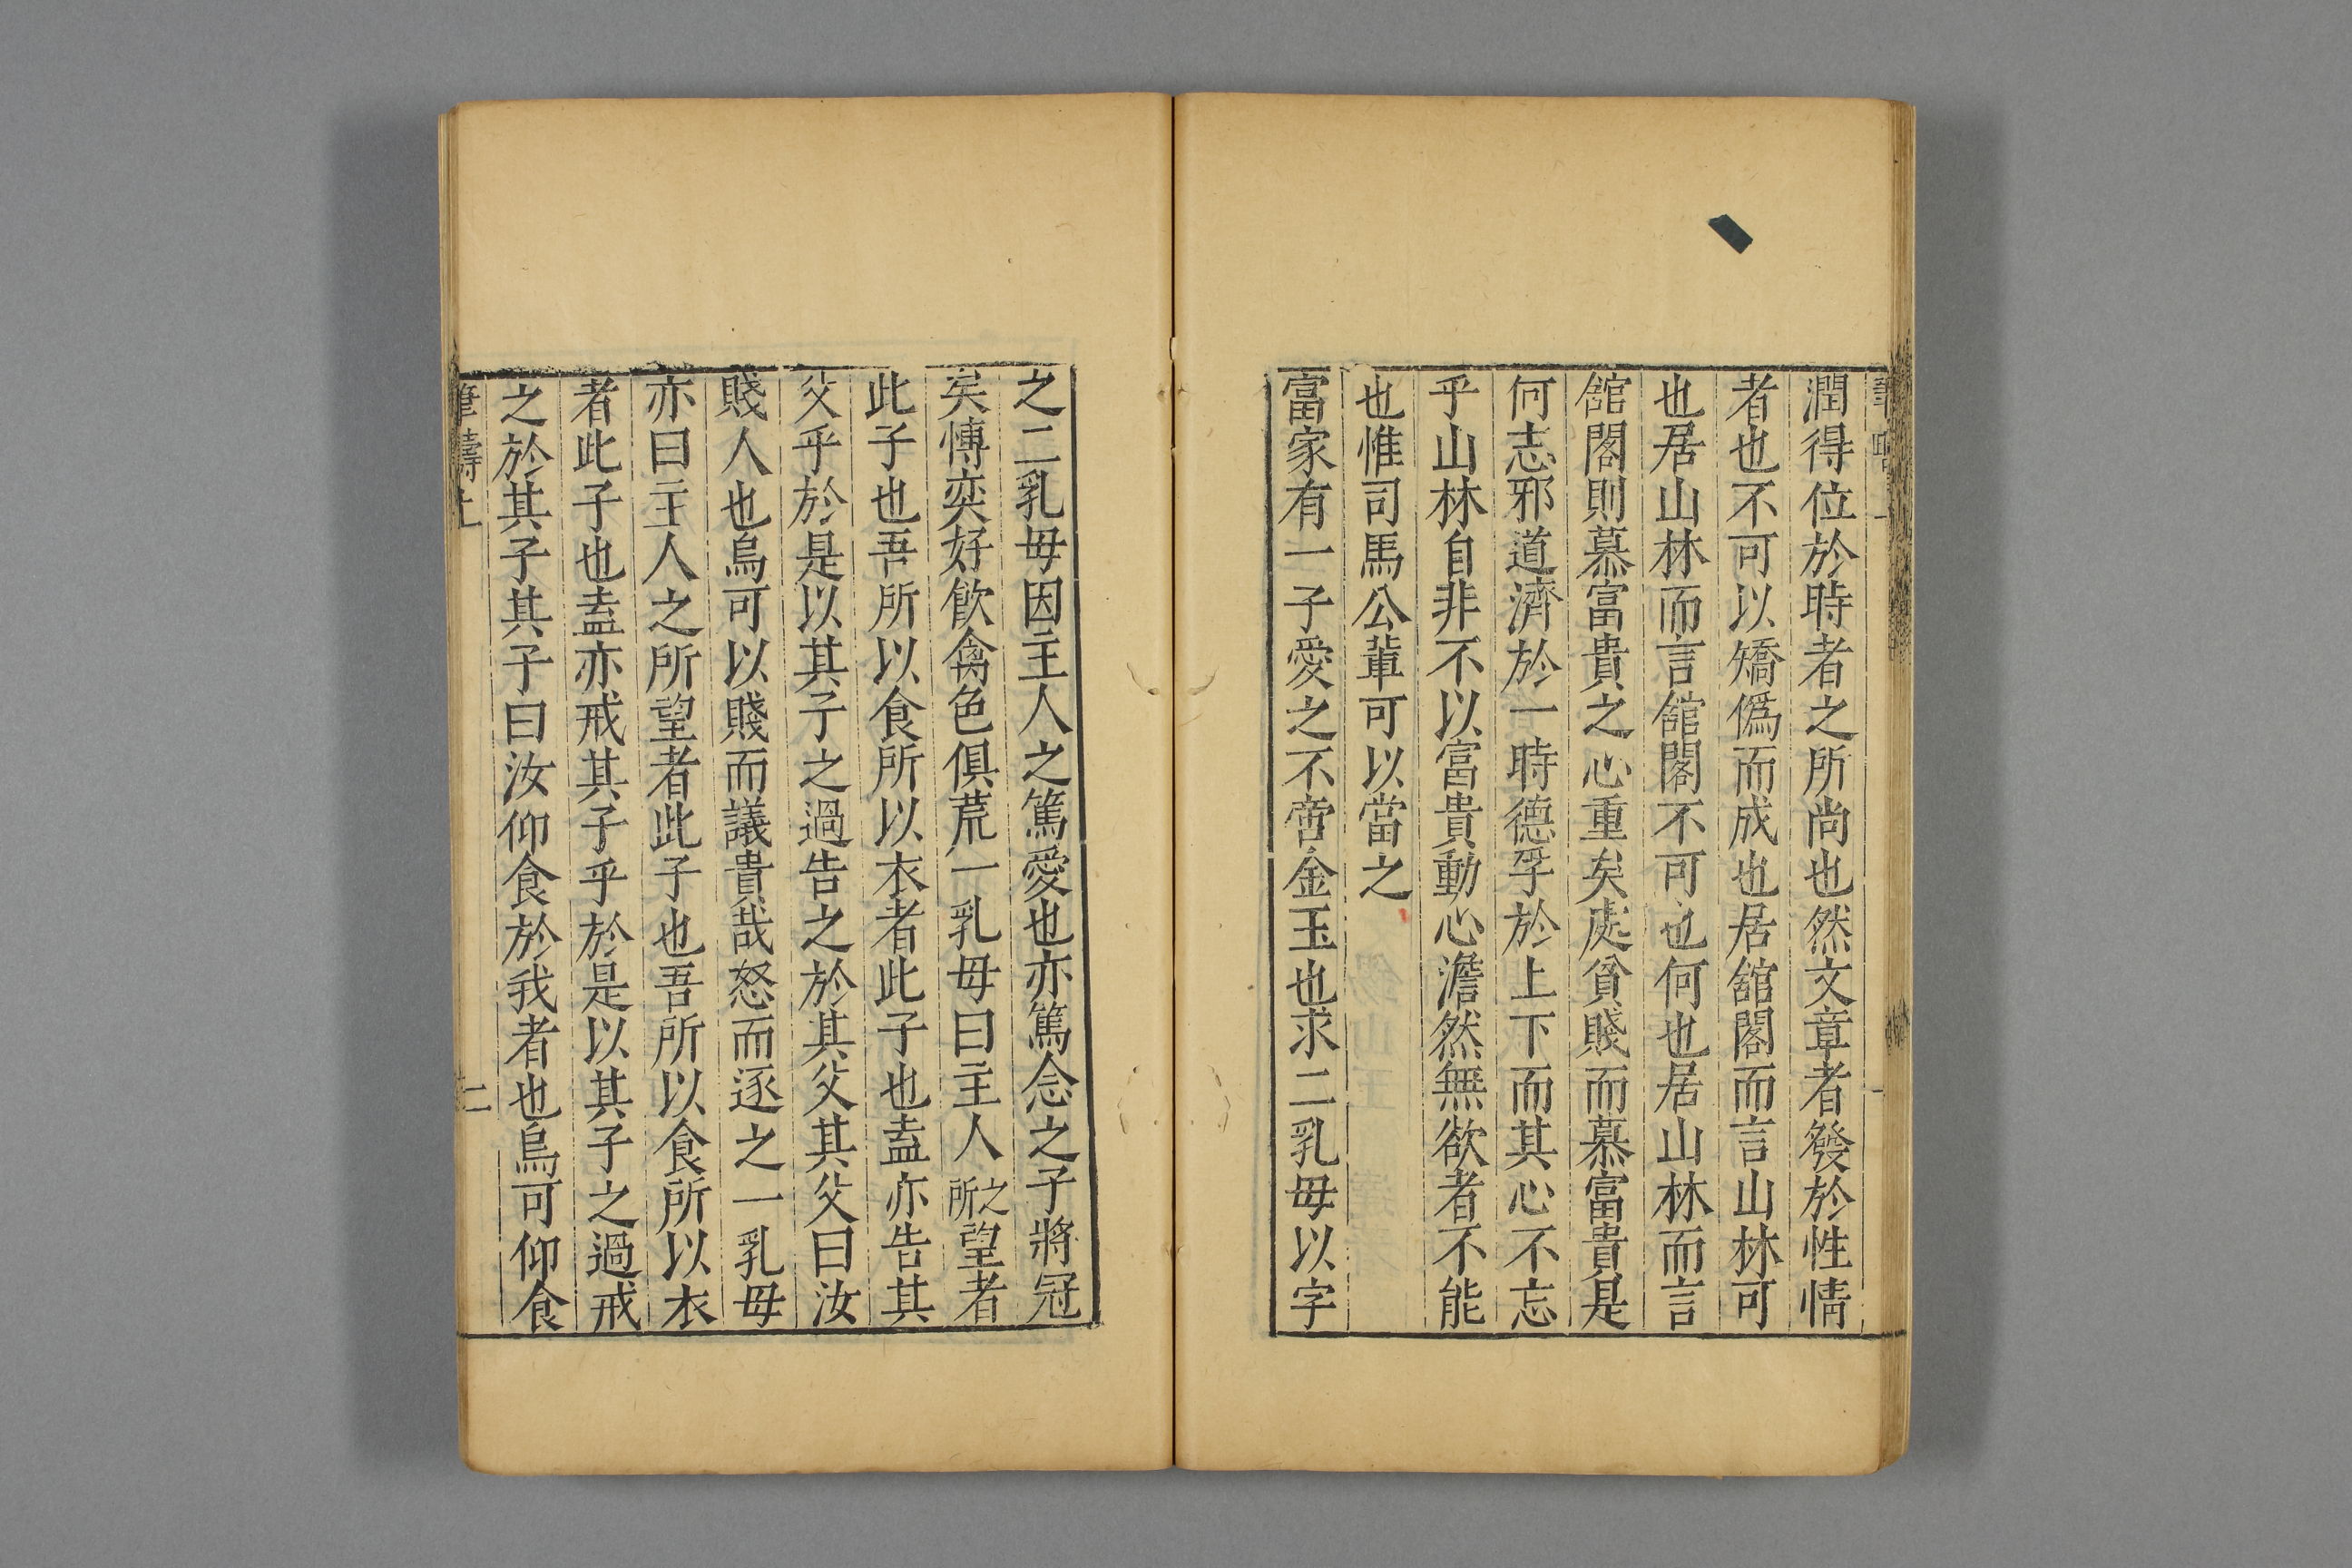 潤得位於時者之所尚也然文章者發於性情
者也不可以矯僞而成也居舘閣而言山林可
也居山林而言舘閣不可也何也居山林而言
舘閣則慕富貴之心重矣處貧賤而慕富貴是
何志邪道濟於一時德孚於上下而其心不忘
乎山林自非不以富貴動心澹然無欲者不能
也惟司馬公輩可以當之
富家有一子愛之不啻金玉也求二乳母以字
之二乳母因主人之篤愛也亦篤念之子將冠
矣慱奕好飲禽色俱荒一乳母曰主人之所望者
此子也吾所以食所以衣者此子也盍亦告其
父乎於是以其子之過告之於其父其父曰汝
賤人也烏可以賤而議貴哉怒而逐之一乳母
亦曰主人之所望者此子也吾所以食所以衣
者此子也盍亦戒其子乎於是以其子之過戒
之於其子其子曰汝仰食於我者也烏可仰食
筆疇上
二